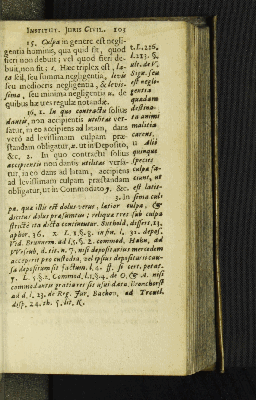 INSTITUT. JURIS CIVIL. 105
15. Culpa in genere est negli-
gentia hominis, qua quid fit, quod
fieri non debuit; vel quod fieri de-
buit, non fit; Hæc triplex est, la-
ta seu summa negligentia, levis
seu mediocris negligentia, & levis-
sima, seu minima negligentia de
quibus hæ tres regulæ notandæ.
16. 1. In quo contractu solius
dantis, non accipientis utilitas ver-
satur, in eo accipiens ad latam, dans
verò ad levissimam culpam præ-
standam obligatur, ut in Deposito,
&c. 2. In quo contractu solius
accipientis non dantis utilitas versa-
tur, in eo dans ad latam, accipiens
ad levissimam culpam præstandam
obligatur, ut in Commodato &c.
3. In sima cul-
pa, qua illi est dolus verus, latior culpa, &
dicitur dolus præsumtus; reliqua tres sub culpa
strictè ita dicta continentur.
aphor. 36.
Vid. Brunnem. ad l. 5. §. 2. commod. Hahn. ad
Wesenb. d. tit. n. 7. nisi depositarius mercedem
acceperit pro custodia, vel ipsius depositarii cau-
sa depositum sit factum. l. 1. ff. si cert. petat.
commodantis gratia res sit usui data. Bronchorst
ad d. l. 23. de Reg. Jur. Bachov. ad Treutl.
disp. 24. th. 5. lit. K.
est negli-
gentia
quædam
destina-
ta animi
malitia
carens.
Alii
quinque
species
culpæ fa-
ciunt, ut
est latis-